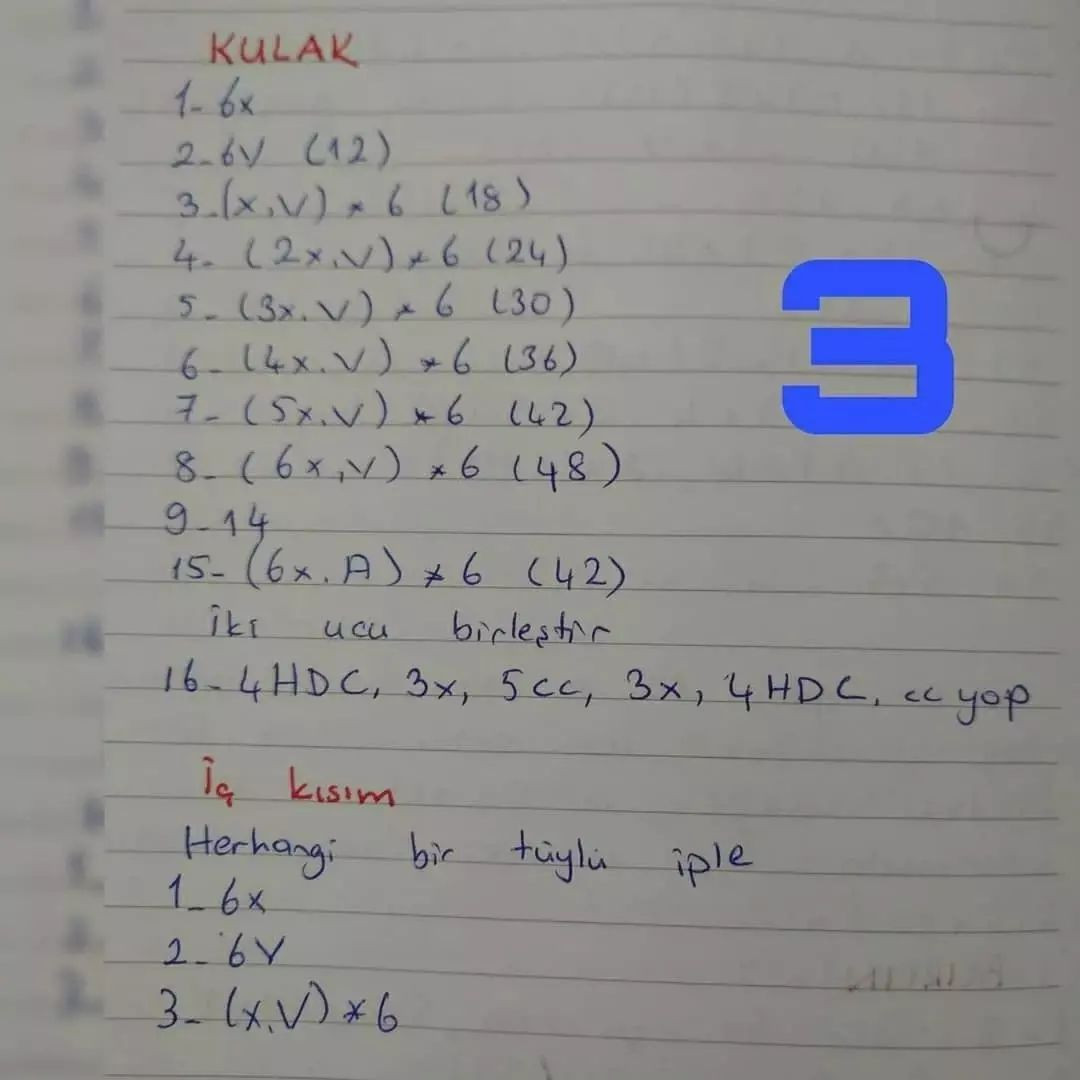 KULAK
1- 6x
2- 6V (12)
3- (x,V) * 6 (18)
4- (2x,V) * 6 (24)
5- (3x,V) * 6 (30)
6- (4x,V) * 6 (36)
7- (5x,V) * 6 (42)
8- (6x,V) * 6 (48)
9-14
15- (6x,A) * 6 (42)
İki ucu birleştir
16- 4HDC, 3x, 5cc, 3x, 4HDC, cc yap
3
İç kısım
Herhangi bir tüylü iple
1- 6x
2- 6V
3- (x,V) * 6